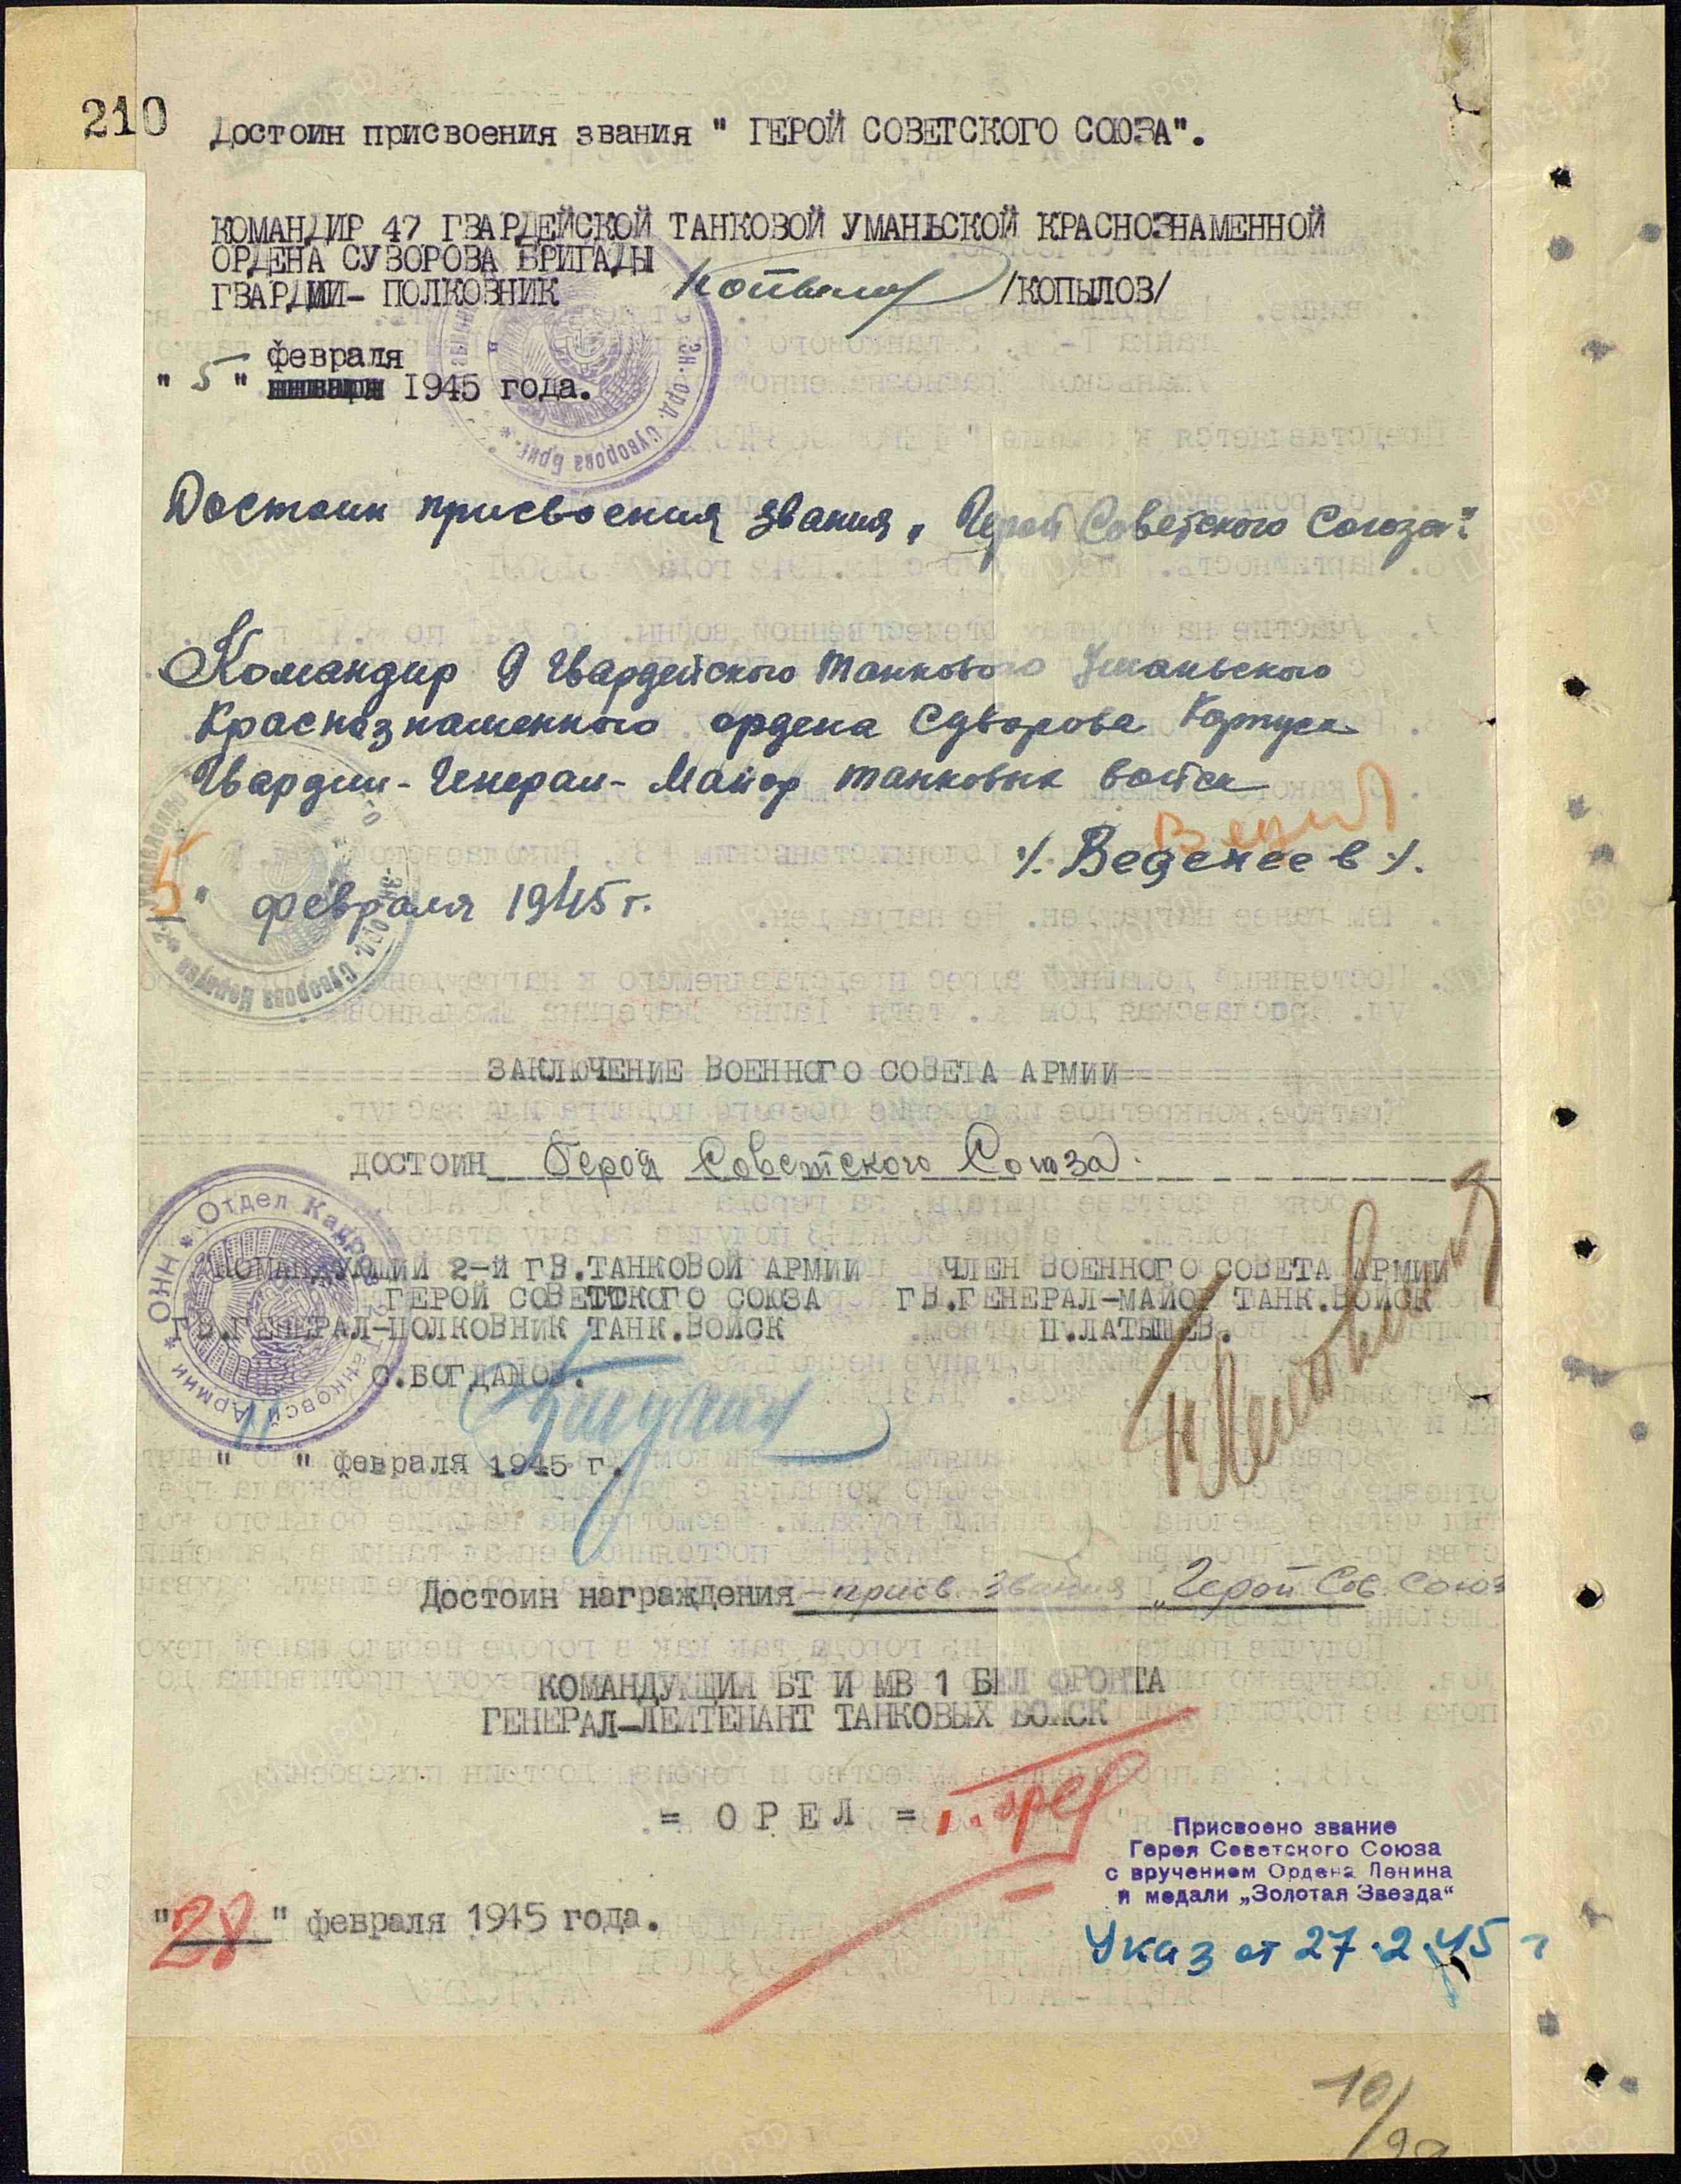 210
Достоин присвоения звания " ГЕРОЙ СОВЕТСКОГО СОЮЗА".
КОМАНДИР 47 ГВАРДЕЙСКОЙ ТАНКОВОЙ УМАНЬСКОЙ КРАСНОЗНАМЕННОЙ
ОРДЕНА СУВОРОВА БРИГАДЫ
ГВАРДИИ- ПОЛКОВНИК /КОПЫЛОВ/
февраля
" 5 " января 1945 года.
Достоин присвоения звания „Герой Советского Союза".
Командир 9 Гвардейского Танкового Уманьского
Краснознаменного ордена Суворова Корпуса
Гвардии - Генерал - Майор танковых войск
/. Веденеев /.
"5" февраля 1945 г.
ЗАКЛЮЧЕНИЕ ВОЕННОГО СОВЕТА АРМИИ
ДОСТОИН Героя Советского Союза.
КОМАНДУЮЩИЙ 2-й ГВ.ТАНКОВОЙ АРМИИ ЧЛЕН ВОЕННОГО СОВЕТА АРМИИ
ГЕРОЙ СОВЕТСКОГО СОЮЗА ГВ.ГЕНЕРАЛ-МАЙОР ТАНК.ВОЙСК
ГВ.ГЕНЕРАЛ-ПОЛКОВНИК ТАНК.ВОЙСК П.ЛАТЫШЕВ.
С.БОГДАНОВ.
" 11 " февраля 1945 г.
Достоин награждения - присв. звания „Герой Сов. Союз
КОМАНДУЮЩИЙ БТ И МВ 1 БЕЛ ФРОНТА
ГЕНЕРАЛ-ЛЕЙТЕНАНТ ТАНКОВЫХ ВОЙСК
= ОРЕЛ =
Присвоено звание
Героя Советского Союза
с вручением Ордена Ленина
и медали „Золотая Звезда"
"28" февраля 1945 года.
Указ от 27.2.45 г
10/